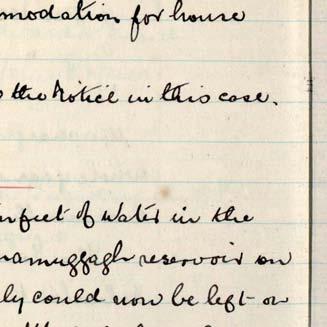 modation for house
the Notice in this case.
feet of water in the
reservoir on
ly could now be left on